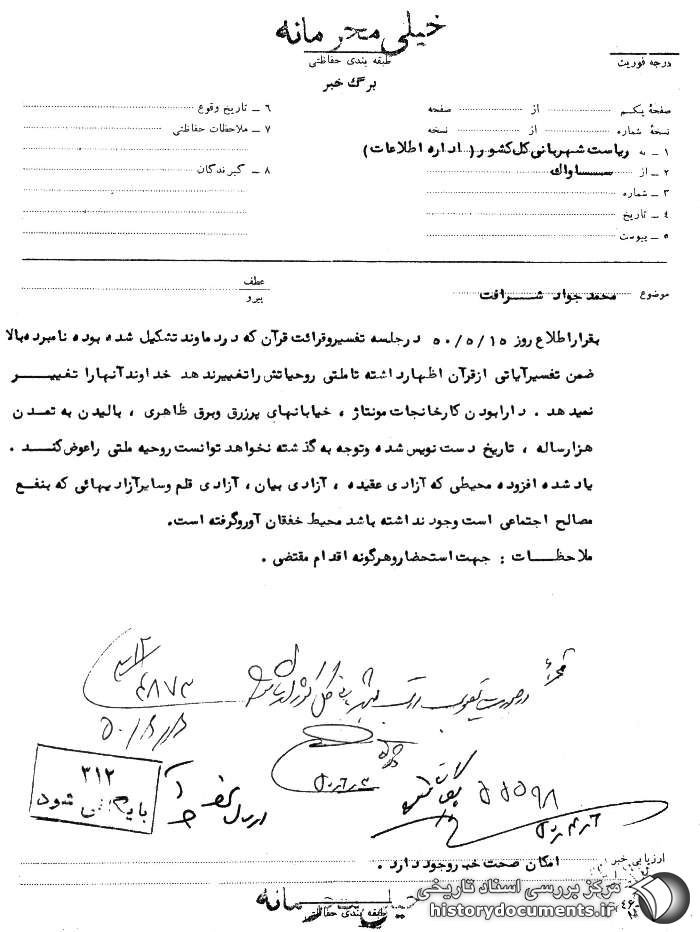 خیلی محرمانه
طبقه بندی حفاظتی
درجه فوریت
برگ خبر
صفحهٔ یکم از صفحه
نسخهٔ شماره از نسخه
۱ ــ به ریاست شهربانی کل کشور (اداره اطلاعات)
۲ ــ از ســـاواک
۳ ــ شماره
۴ ــ تاریخ
۵ ــ پیوست
۶ ــ تاریخ وقوع
۷ ــ ملاحظات حفاظتی
۸ ــ گیرندگان
موضوع محمد جواد شـــرافت
عطف
پیرو
بقرار اطلاع روز ۵۰/۵/۱۵ درجلسه تفسیروقرائت قرآن که دردماوند تشکیل شده بوده نامبرده بالا
ضمن تفسیرآیاتی ازقرآن اظهارداشته تاملتی روحیاتش راتغییرندهد خداوند آنهارا تغییـــر
نمیدهد . دارابودن کارخانجات مونتاژ ، خیابانهای پرزرق وبرق ظاهری ، بالیدن به تمدن
هزارساله ، تاریخ دست نویس شده وتوجه به گذشته نخواهد توانست روحیه ملتی راعوض کنـــد .
یادشده افزوده محیطی که آزادی عقیده ، آزادی بیان ، آزادی قلم وسایرآزادیهائی که بنفع
مصالح اجتماعی است وجود نداشته باشد محیط خفقان آوروگرفته است.
ملاحظـــات : جهت استحضاروهرگونه اقدام مقتضی .
۳۱۲
بایگانی شود
ارزیابی خبر امکان صحت خبر وجود دارد .
خیلی محرمانه
طبقه بندی حفاظتی
مرکز بررسی اسناد تاریخی
historydocuments.ir